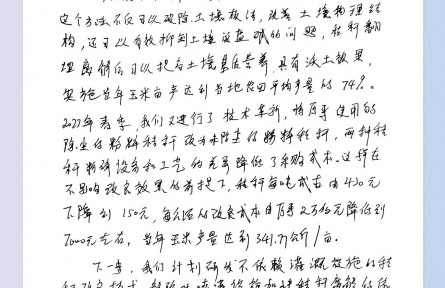 这个方法不仅可以破除土壤板结，改善土壤物理结
构，还可以有效抑制土壤返盐碱的问题，秸秆翻
埋腐解后可以提高土壤基底营养，具有沃土效果，
实施当年玉米亩产达到当地农田平均产量的74%。
2022年春季，我们又进行了技术革新，将原来使用的
除尘的粉粹秸秆改为未除尘的粉粹秸秆，两种秸
秆粉碎设备和工艺的差异降低了采购成本。这样在
不影响改良效果的前提下，秸秆每吨成本由430元
下降到150元，每公顷的改良成本由原来2万余元降低到
7000元左右，当年玉米产量达到341.77公斤/亩。
下一步，我们计划研发不依赖灌溉设施的秸